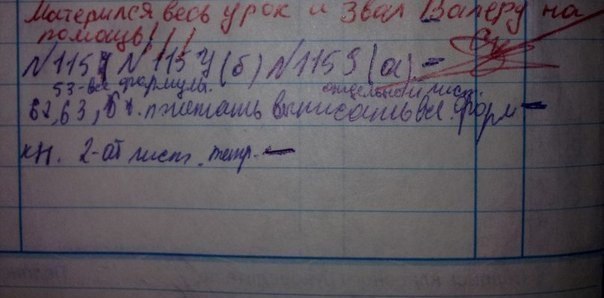 Матерился весь урок и звал Валеру на
помощь!!!
№1154 №1157(б) №1159(а) -
53-все формулы. отдельный лист.
62, 63, выписать все форм -
кн. 2-ой лист. тетр. -